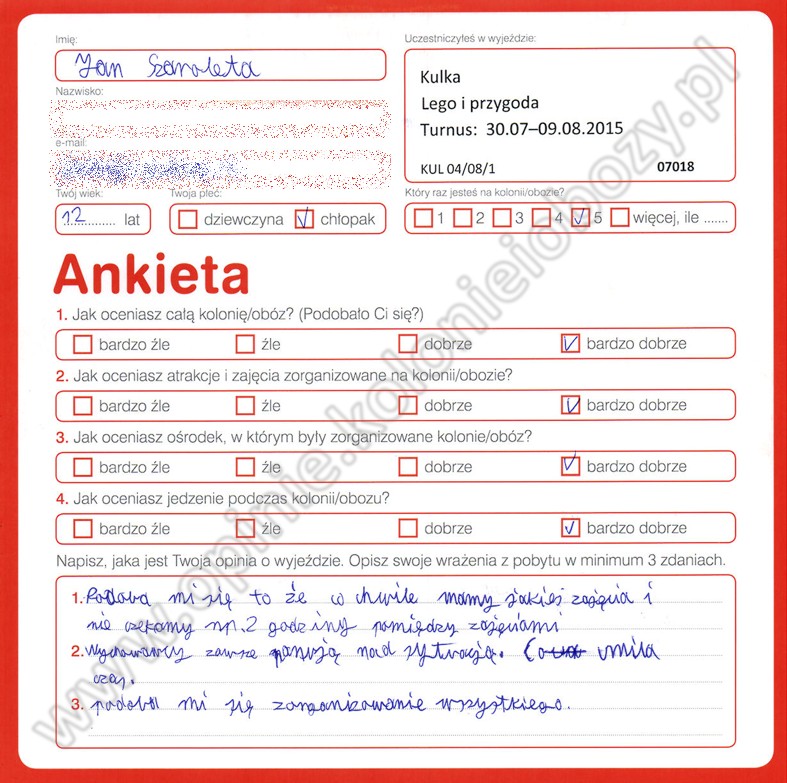 Imię:
Jan Szaroleta
Nazwisko:
e-mail:
Twój wiek:
12 lat
Twoja płeć:
dziewczyna chłopak
Uczestniczyłeś w wyjeździe:
Kulka
Lego i przygoda
Turnus: 30.07–09.08.2015
KUL 04/08/1 07018
Który raz jesteś na kolonii/obozie?
1 2 3 4 5 więcej, ile .......
Ankieta
1. Jak oceniasz całą kolonię/obóz? (Podobało Ci się?)
bardzo źle źle dobrze bardzo dobrze
2. Jak oceniasz atrakcje i zajęcia zorganizowane na kolonii/obozie?
bardzo źle źle dobrze bardzo dobrze
3. Jak oceniasz ośrodek, w którym były zorganizowane kolonie/obóz?
bardzo źle źle dobrze bardzo dobrze
4. Jak oceniasz jedzenie podczas kolonii/obozu?
bardzo źle źle dobrze bardzo dobrze
Napisz, jaka jest Twoja opinia o wyjeździe. Opisz swoje wrażenia z pobytu w minimum 3 zdaniach.
1. Podoba mi się to że w chwile mamy jakieś zajęcia i
nie czekamy np. 2 godziny pomiędzy zajęciami
2. Wychowawcy zawsze panują nad sytuacją. umila
czas.
3. podoba mi się zorganizowanie wszystkiego.
www.opinie.kolonieiobozy.pl